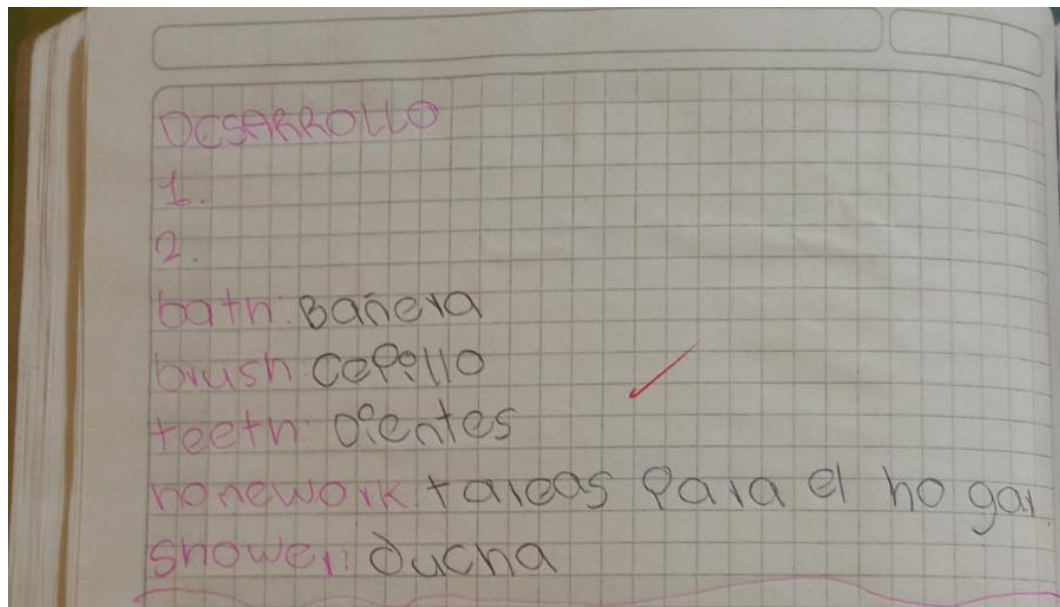 DESARROLLO
1.
2.
bath: Bañera
brush cepillo
teeth: Dientes
homework tareas para el hogar
shower: ducha